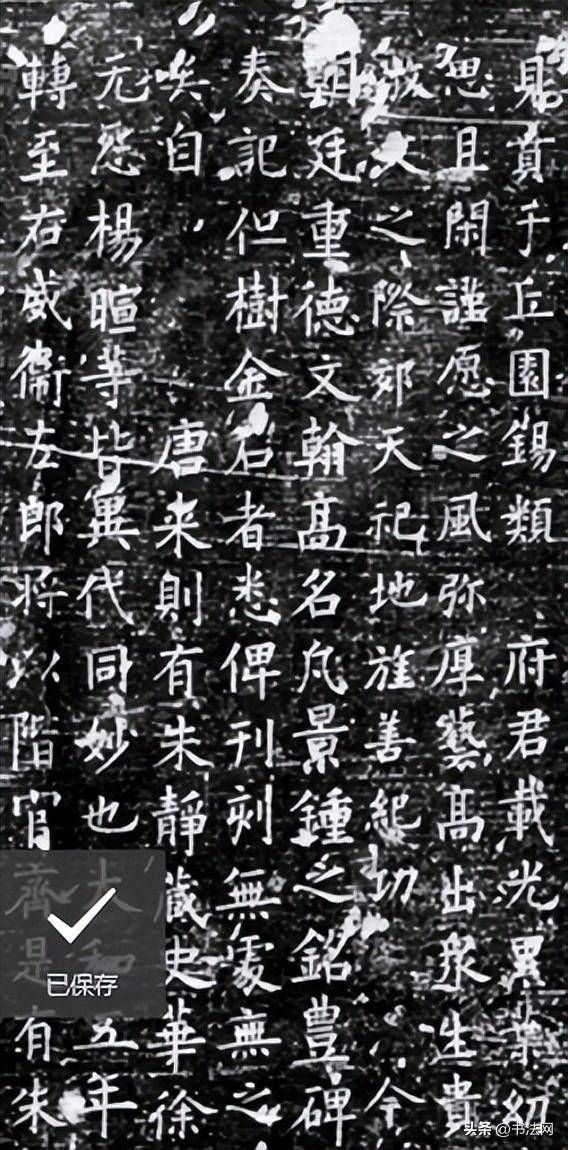 見賁乎丘園錫類 府君載光累葉幼
思且閑謹愿之風弥厚藝高出衆生貴
文之際郊天祀地旌善紀功 今
朝廷重德文翰高名凡景鍾之銘豊碑
奏記但樹金石者悉俾刊刻無處無之
矣自 唐来則有朱靜藏史華徐
元楊暄等皆異代同妙也大和五年
轉至右威衛左郎将以階官齊是有朱
已保存
头条 @书法网